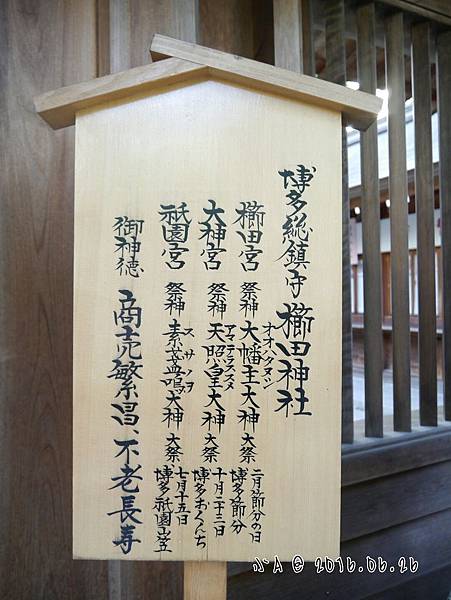 博多総鎮守 櫛田神社
櫛田宮 祭神 大幡主大神 大祭 二月節分の日 博多節分
オオハタヌシ
大神宮 祭神 天照皇大神 大祭 十月二十三日 博多おくんち
アマテラススメ
祇園宮 祭神 素盞嗚大神 大祭 七月十五日 博多祇園山笠
スサノヲ
御神徳 商売繁昌、不老長寿
小A @ 2016.06.26